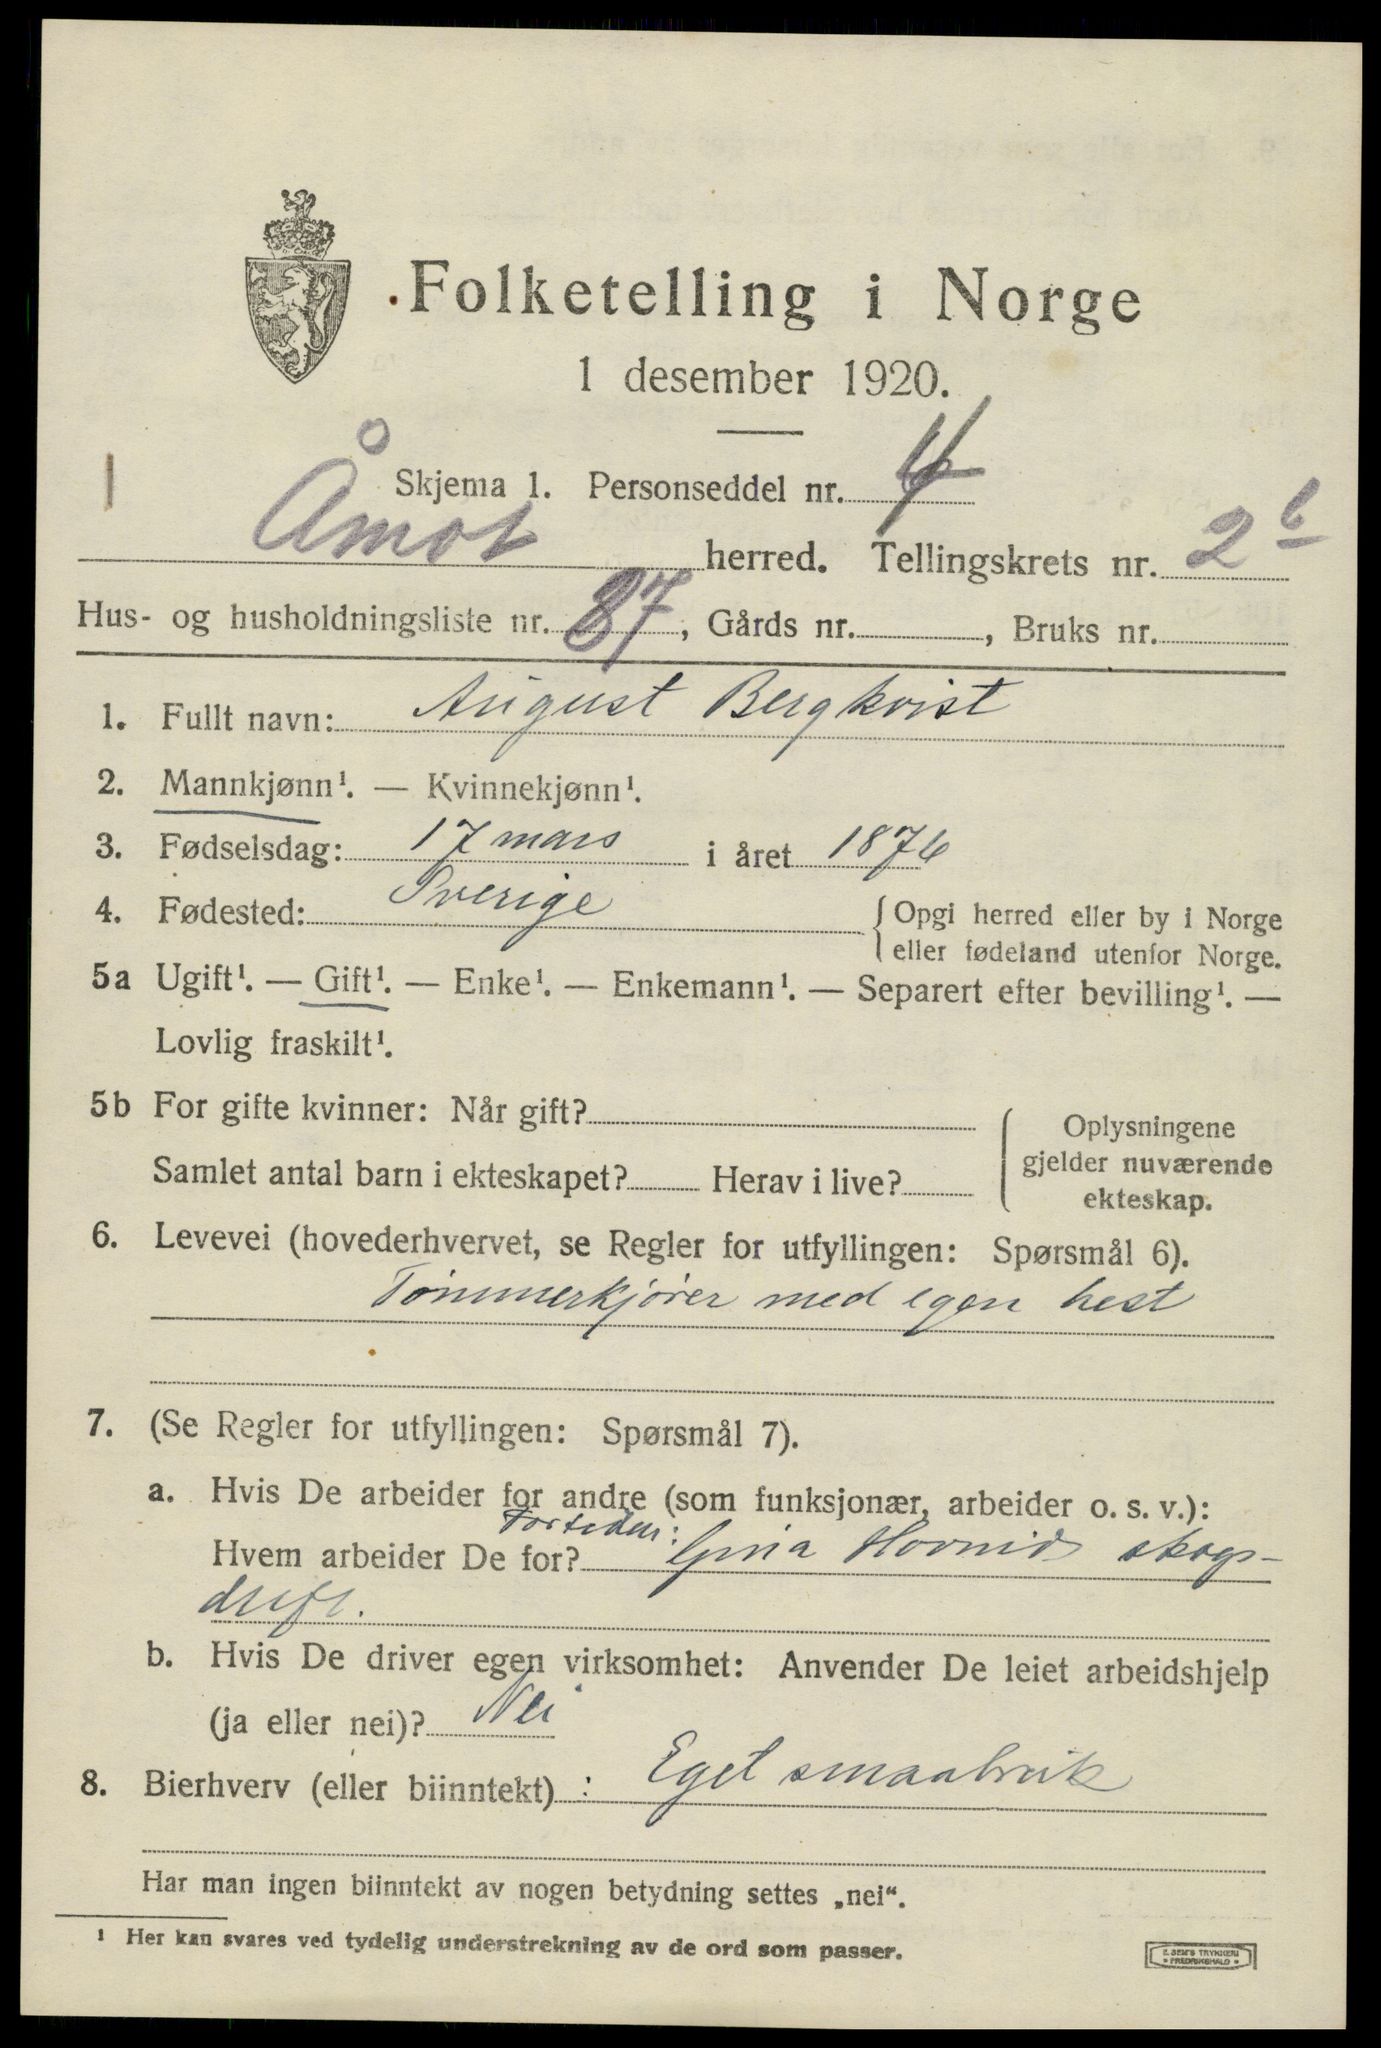 Folketelling i Norge
1 desember 1920.
Skjema 1. Personseddel nr. 4
Åmot herred. Tellingskrets nr. 2 b
Hus- og husholdningsliste nr. 87, Gårds nr. , Bruks nr.
1. Fullt navn: August Bergkvist
2. Mannkjønn¹. — Kvinnekjønn¹.
3. Fødselsdag: 17 mars i året 1876
4. Fødested: Sverige { Opgi herred eller by i Norge
eller fødeland utenfor Norge.
5a Ugift¹. — Gift¹. — Enke¹. — Enkemann¹. — Separert efter bevilling¹. —
Lovlig fraskilt¹.
5b For gifte kvinner: Når gift?
Samlet antal barn i ekteskapet? Herav i live?
Oplysningene
gjelder nuværende
ekteskap.
6. Levevei (hovederhvervet, se Regler for utfyllingen: Spørsmål 6).
Tømmerkjører med egen hest
7. (Se Regler for utfyllingen: Spørsmål 7).
a. Hvis De arbeider for andre (som funksjonær, arbeider o. s. v.):
Fortiden:
Hvem arbeider De for? skogs-
drift.
b. Hvis De driver egen virksomhet: Anvender De leiet arbeidshjelp
(ja eller nei)? Nei
8. Bierhverv (eller biinntekt) : Eget smaabruk
Har man ingen biinntekt av nogen betydning settes „nei“.
¹ Her kan svares ved tydelig understrekning av de ord som passer.
E. SEM'S TRYKKERI
• FREDRIKSHALD •